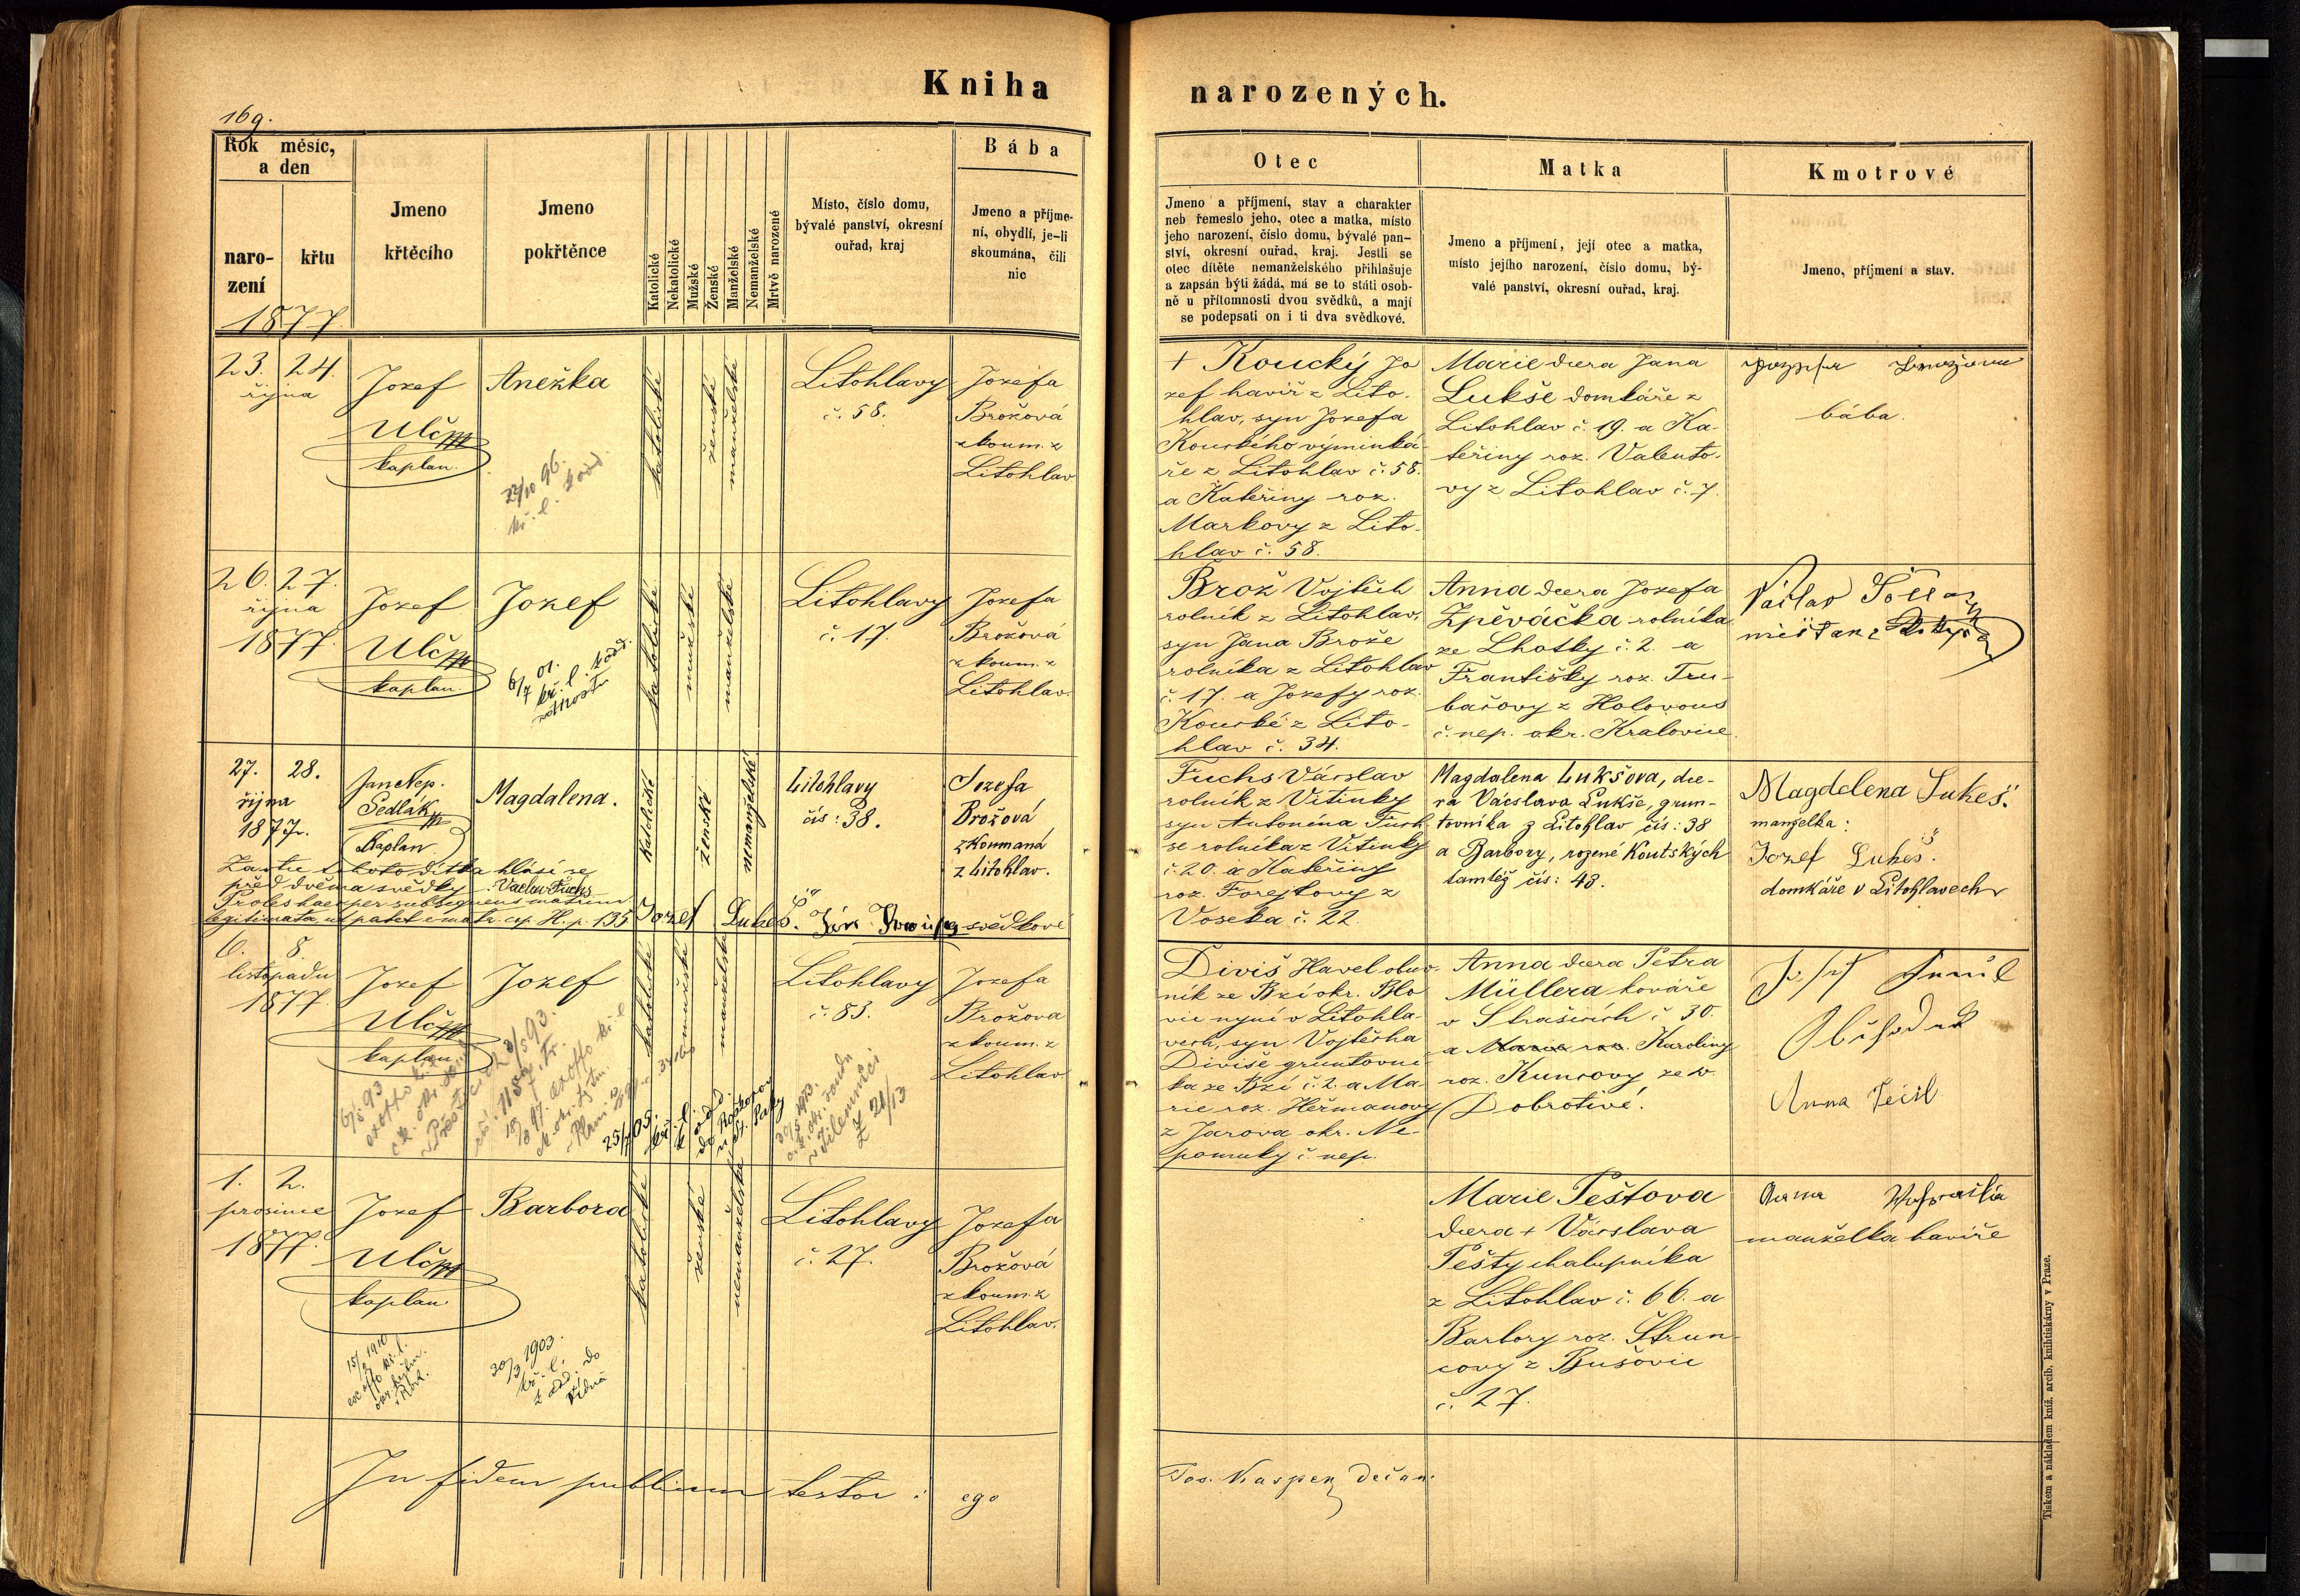 Kniha
narozených.
169.
Rok měsíc,
a den
naro-
zení
křtu
1877.
Jmeno
křtěcího
Jmeno
pokřtěnce
Katolické
Nekatolické
Mužské
Ženské
Manželské
Nemanželské
Mrtvě narozené
Místo, číslo domu,
bývalé panství, okresní
ouřad, kraj
Bába
Jmeno a příjme-
ní, obydlí, je-li
skoumána, čili
nic
Otec
Jmeno a příjmení, stav a charakter
neb řemeslo jeho, otec a matka, místo
jeho narození, číslo domu, bývalé pan-
ství, okresní ouřad, kraj. Jestli se
otec dítěte nemanželského přihlašuje
a zapsán býti žádá, má se to státi osob-
ně u přítomnosti dvou svědků, a mají
se podepsati on i ti dva svědkové.
Matka
Jmeno a příjmení, její otec a matka,
místo jejího narození, číslo domu, bý-
valé panství, okresní ouřad, kraj.
Kmotrové
Jmeno, příjmení a stav.
23. 24.
října
Jozef
Ulč
kaplan.
Anežka
22/10 96.
kř. l.
katolické
ženské
manželské
Litohlavy
č. 58.
Jozefa
Brožová
zkoum. z
Litohlav
+ Koucký Jo
zef havíř z Lito-
hlav, syn Jozefa
Kouckého výminká-
ře z Litohlav č. 58.
a Kateřiny roz.
Markovy z Lito-
hlav č. 58.
Marie dcera Jana
Lukše domkáře z
Litohlav č. 19. a Ka-
teřiny roz. Valento-
vy z Litohlav č. 7.
bába.
26. 27.
října
1877.
Jozef
Ulč
kaplan
Jozef
6/7 01.
kř. l.
katolické
mužské
manželské
Litohlavy
č. 17.
Jozefa
Brožová
zkoum. z
Litohlav.
Brož Vojtěch
rolník z Litohlav,
syn Jana Brože
rolníka z Litohlav
č. 17. a Jozefy roz.
Koucké z Lito-
hlav č. 34.
Anna dcera Jozefa
Zpěváčka rolníka
ze Lhotky č. 2. a
Františky roz. Tru-
bačovy z Holovous
č. nep. okr. Kralovice.
Václav
měšťan z
27. 28.
října
1877.
Jan Nep.
Sedlák
Kaplan.
Magdalena.
katolické
ženské
nemanželské
Litohlavy
čís: 38.
Jozefa
Brožová
zkoumaná
z Litohlav.
Za otce tohoto dítka hlásí se
před dvěma svědky: Václav Fuchs
Proles haec per subsequens matrim.
legitimata ut patet e matr. cop. H. p. 135
Jozef Lukeš. Jan svědkové
Fuchs Václav
rolník z Vitinky
syn Antonína Fuch
se rolníka z Vitinky
č. 20. a Kateřiny
roz. Forejtovy z
Voseka č. 22.
Magdalena Lukšova, dce-
ra Václava Lukše, grun-
tovníka z Litohlav čís: 38
a Barbory, rozené Koutských
tamtéž čís: 43.
Magdelena Lukeš.
manželka:
Jozef Lukeš.
domkáře v Litohlavech
6. 8.
listopadu
1877.
Jozef
Ulč
kaplan
Jozef
katolické
mužské
manželské
Litohlavy
č. 83.
Jozefa
Brožova
zkoum. z
Litohlav
Diviš Havel obuv-
ník ze Bzí okr. Blo
vic nyní v Litohla-
vech, syn Vojtěcha
Diviše gruntovní-
ka ze Bzí č. 2. a Ma-
rie roz. Heřmanovy
z Jarova okr. Ne-
pomuky č. nep.
Anna dcera Petra
Müllera kováře
v Strašicích č 30.
a Marie roz. Karoliny
roz. Kuncovy ze sv.
Dobrotivé.
Anna
1. 2.
prosince
1877.
Jozef
Ulč
kaplan.
15/2 1910
ex offo kř. l.
Barbora
30/3 1903.
kř. l.
katolické
ženské
nemanželské
Litohlavy
č. 27.
Jozefa
Brožová
zkoum. z
Litohlav.
Marie Peštova
dcera + Václava
Pešty chalupníka
z Litohlav č. 66. a
Barbory roz. Štrun-
covy z Bušovic
č. 27.
Anna
manželka havíře
In fidem publicam testor: ego
Jos. Kaspen děkan.
Tiskem a nákladem kníž. arcib. knihtiskárny v Praze.